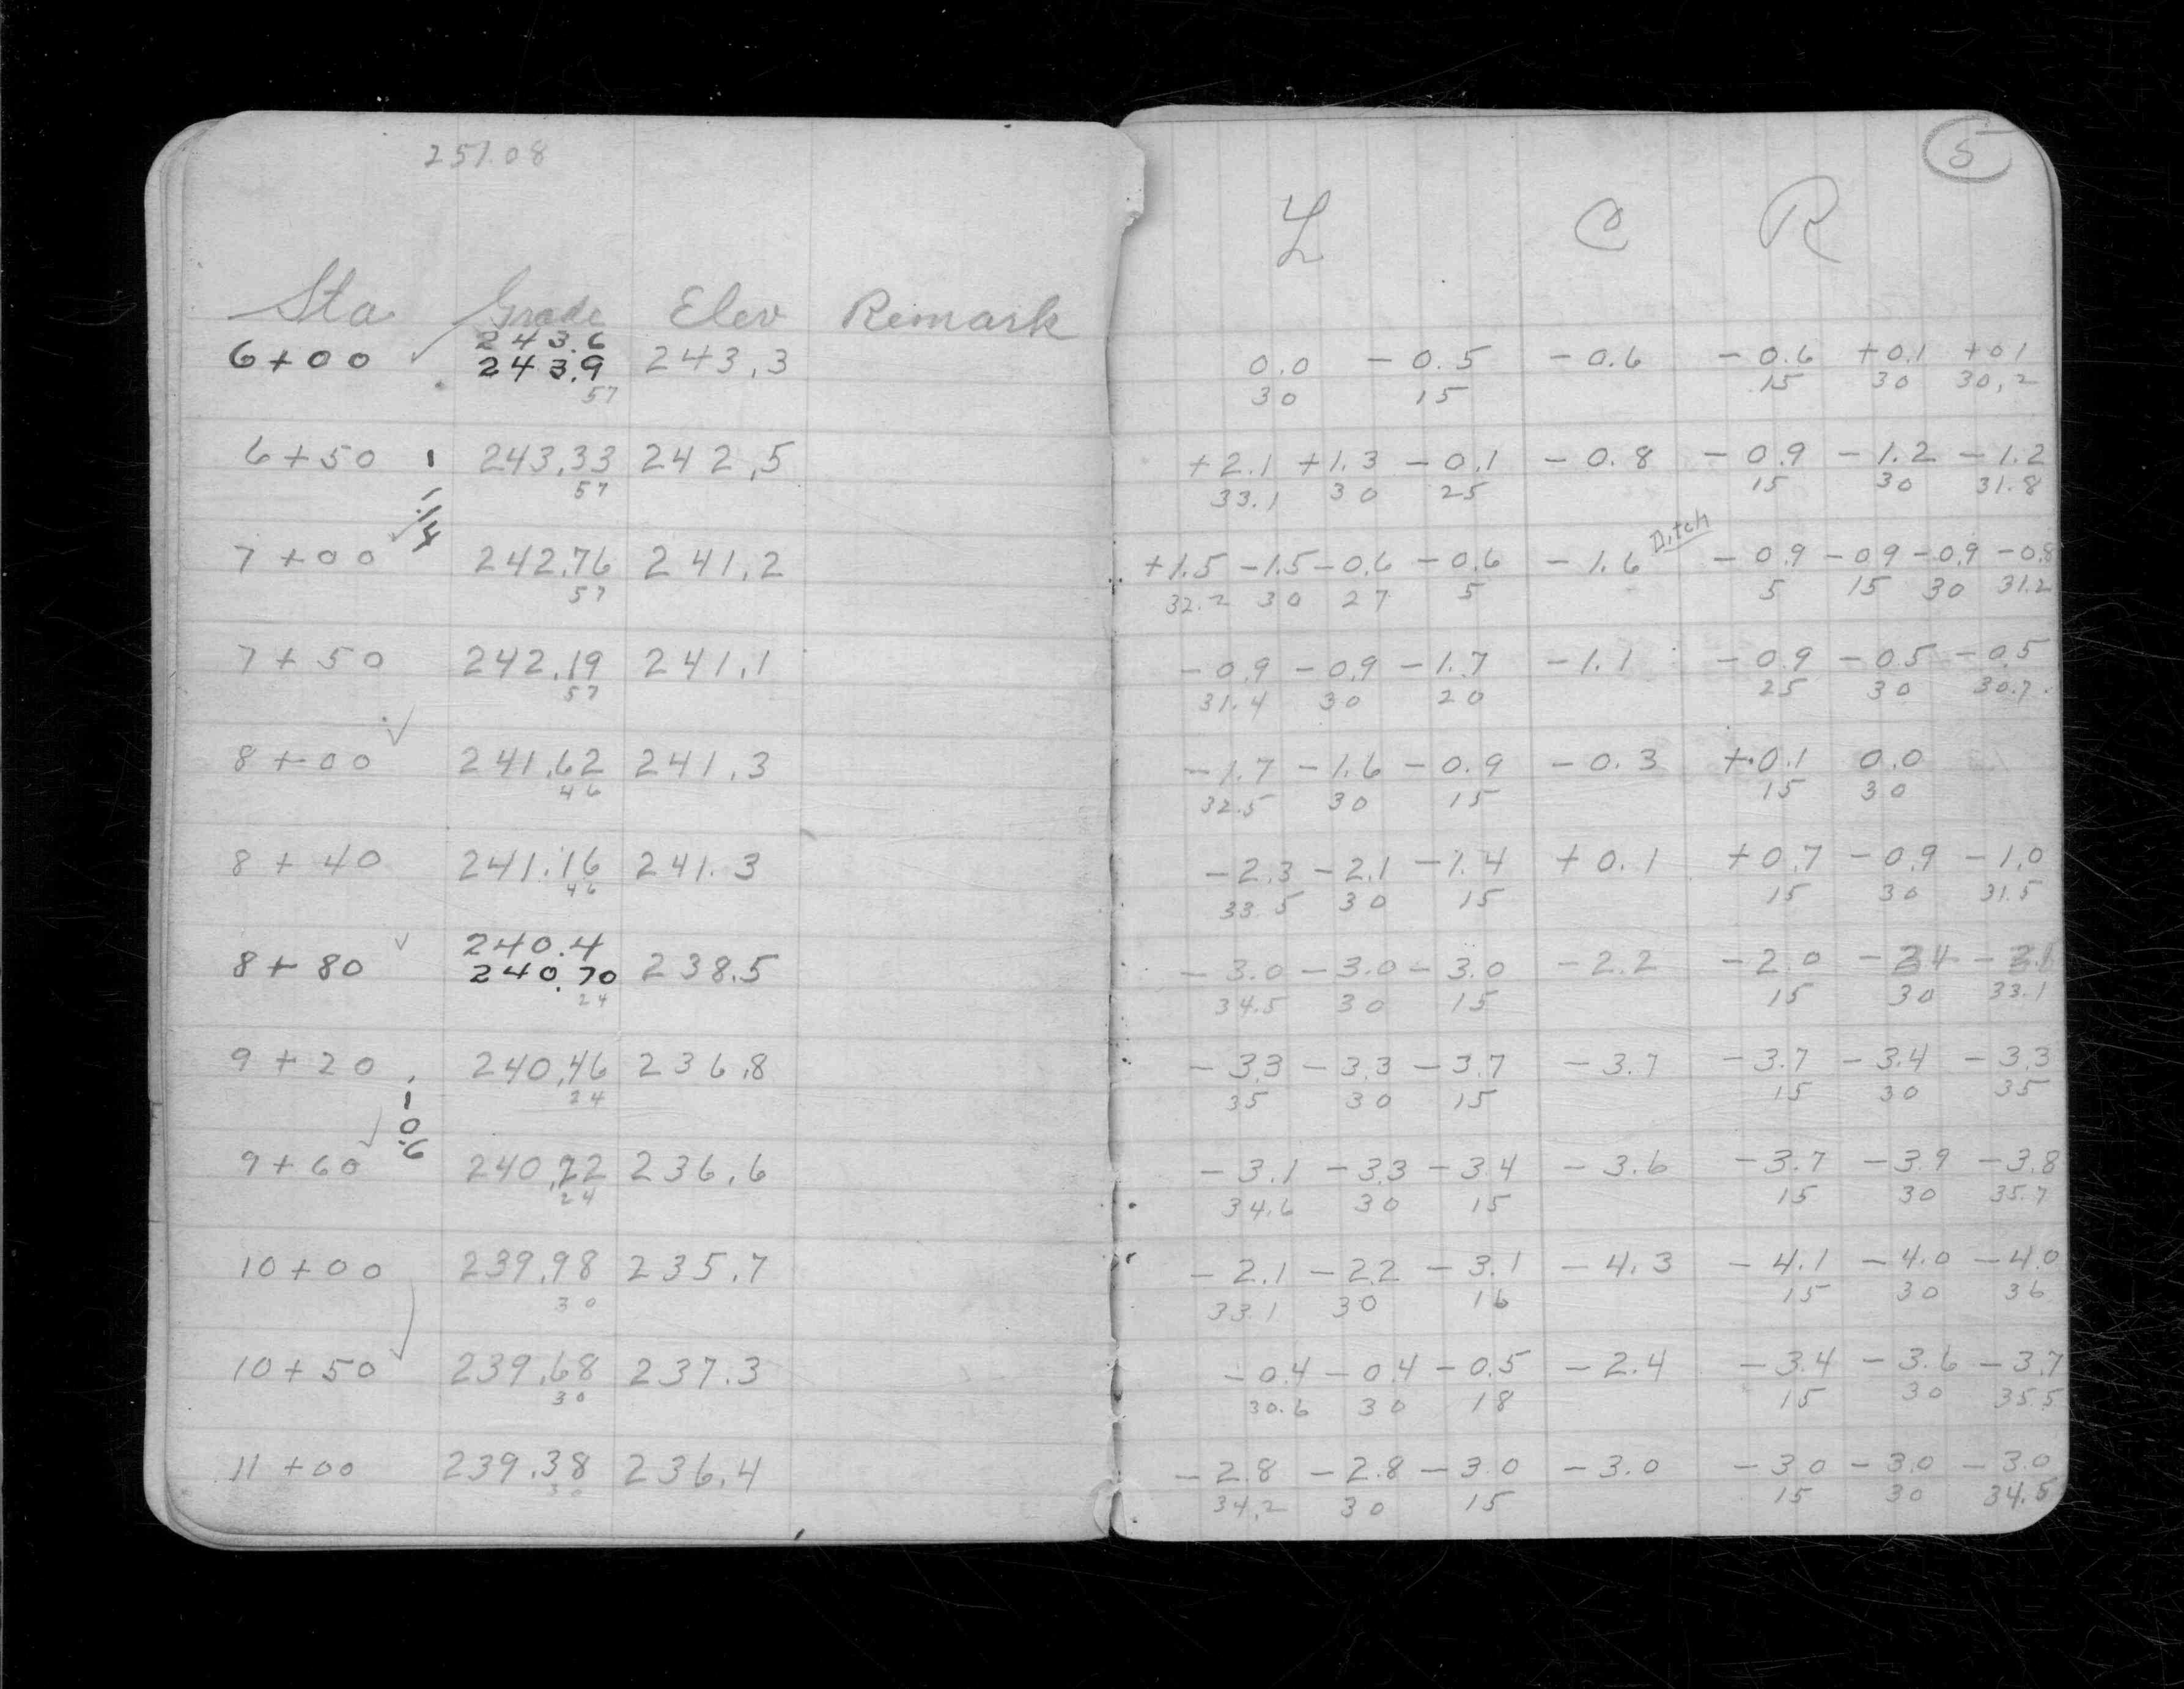 251.08
Sta Grade Elev Remark
243.6
6+00 ✓ 243.9 243.3
57
6+50 243.33 242.5
57
-1.14
7+00 ✓ 242.76 241.2
57
7+50 242.19 241.1
57
8+00 ✓ 241.62 241.3
46
8+40 241.16 241.3
46
240.4
8+80 ✓ 240.70 238.5
24
9+20 240.46 236.8
24
-0.6
9+60 ✓ 240.22 236.6
24
10+00 239.98 235.7
30
10+50 ✓ 239.68 237.3
30
11+00 239.38 236.4
30
5
L C R
0.0 -0.5 -0.6 -0.6 +0.1 +0.1
30 15 15 30 30.2
+2.1 +1.3 -0.1 -0.8 -0.9 -1.2 -1.2
33.1 30 25 15 30 31.8
Ditch
+1.5 -1.5 -0.6 -0.6 -1.6 -0.9 -0.9 -0.9 -0.8
32.2 30 27 5 5 15 30 31.2
-0.9 -0.9 -1.7 -1.1 -0.9 -0.5 -0.5
31.4 30 20 25 30 30.7
-1.7 -1.6 -0.9 -0.3 +0.1 0.0
32.5 30 15 15 30
-2.3 -2.1 -1.4 +0.1 +0.7 -0.9 -1.0
33.5 30 15 15 30 31.5
-3.0 -3.0 -3.0 -2.2 -2.0 -2.4 -2.1
34.5 30 15 15 30 33.1
-3.3 -3.3 -3.7 -3.7 -3.7 -3.4 -3.3
35 30 15 15 30 35
-3.1 -3.3 -3.4 -3.6 -3.7 -3.9 -3.8
34.6 30 15 15 30 35.7
-2.1 -2.2 -3.1 -4.3 -4.1 -4.0 -4.0
33.1 30 16 15 30 36
-0.4 -0.4 -0.5 -2.4 -3.4 -3.6 -3.7
30.6 30 18 15 30 35.5
-2.8 -2.8 -3.0 -3.0 -3.0 -3.0 -3.0
34.2 30 15 15 30 34.5